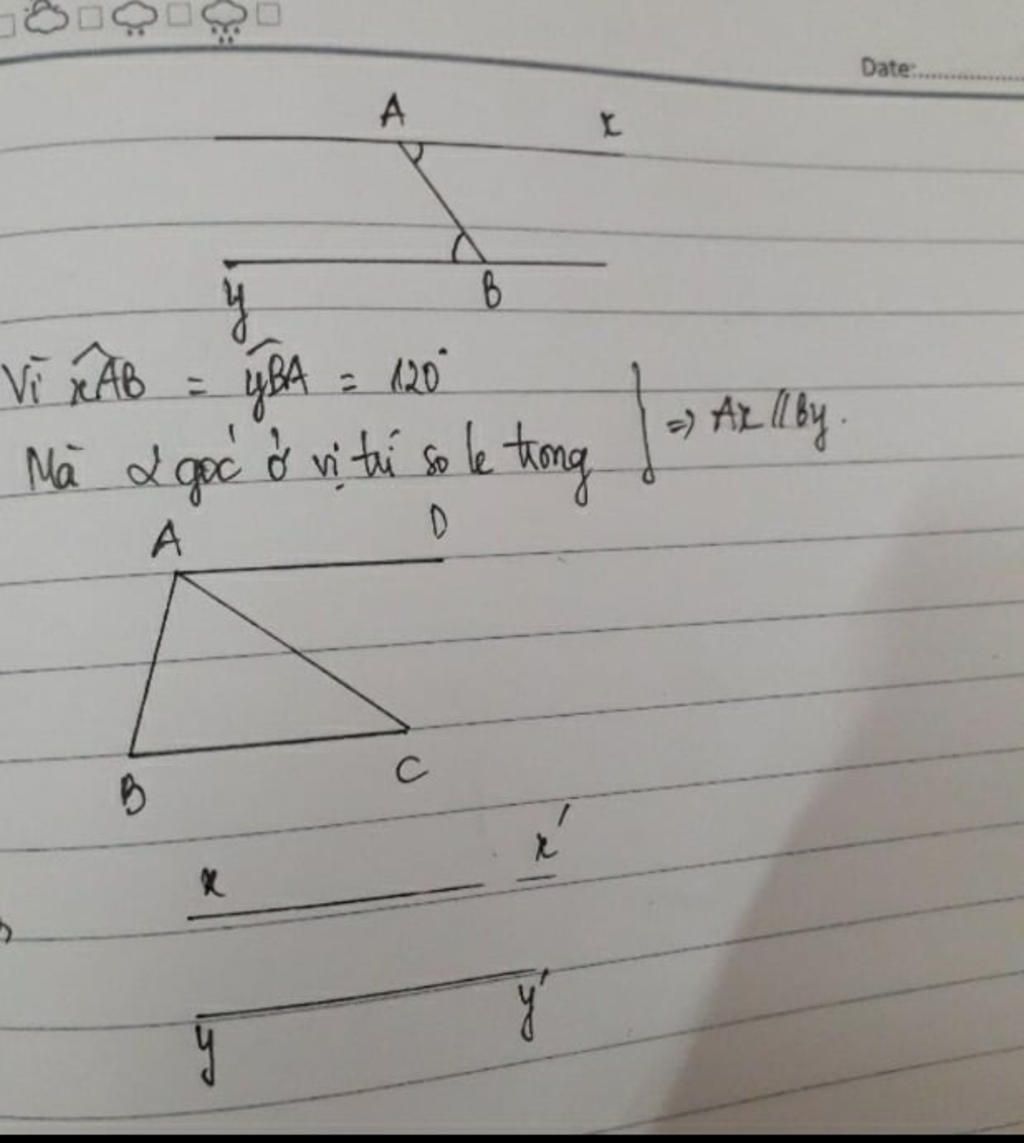 Date:
A x
y B
Vì xÂB = yB̂A = 120°
Mà 2 góc ở vị trí so le trong } => Ax // By.
A D
B C
x x'
y y'